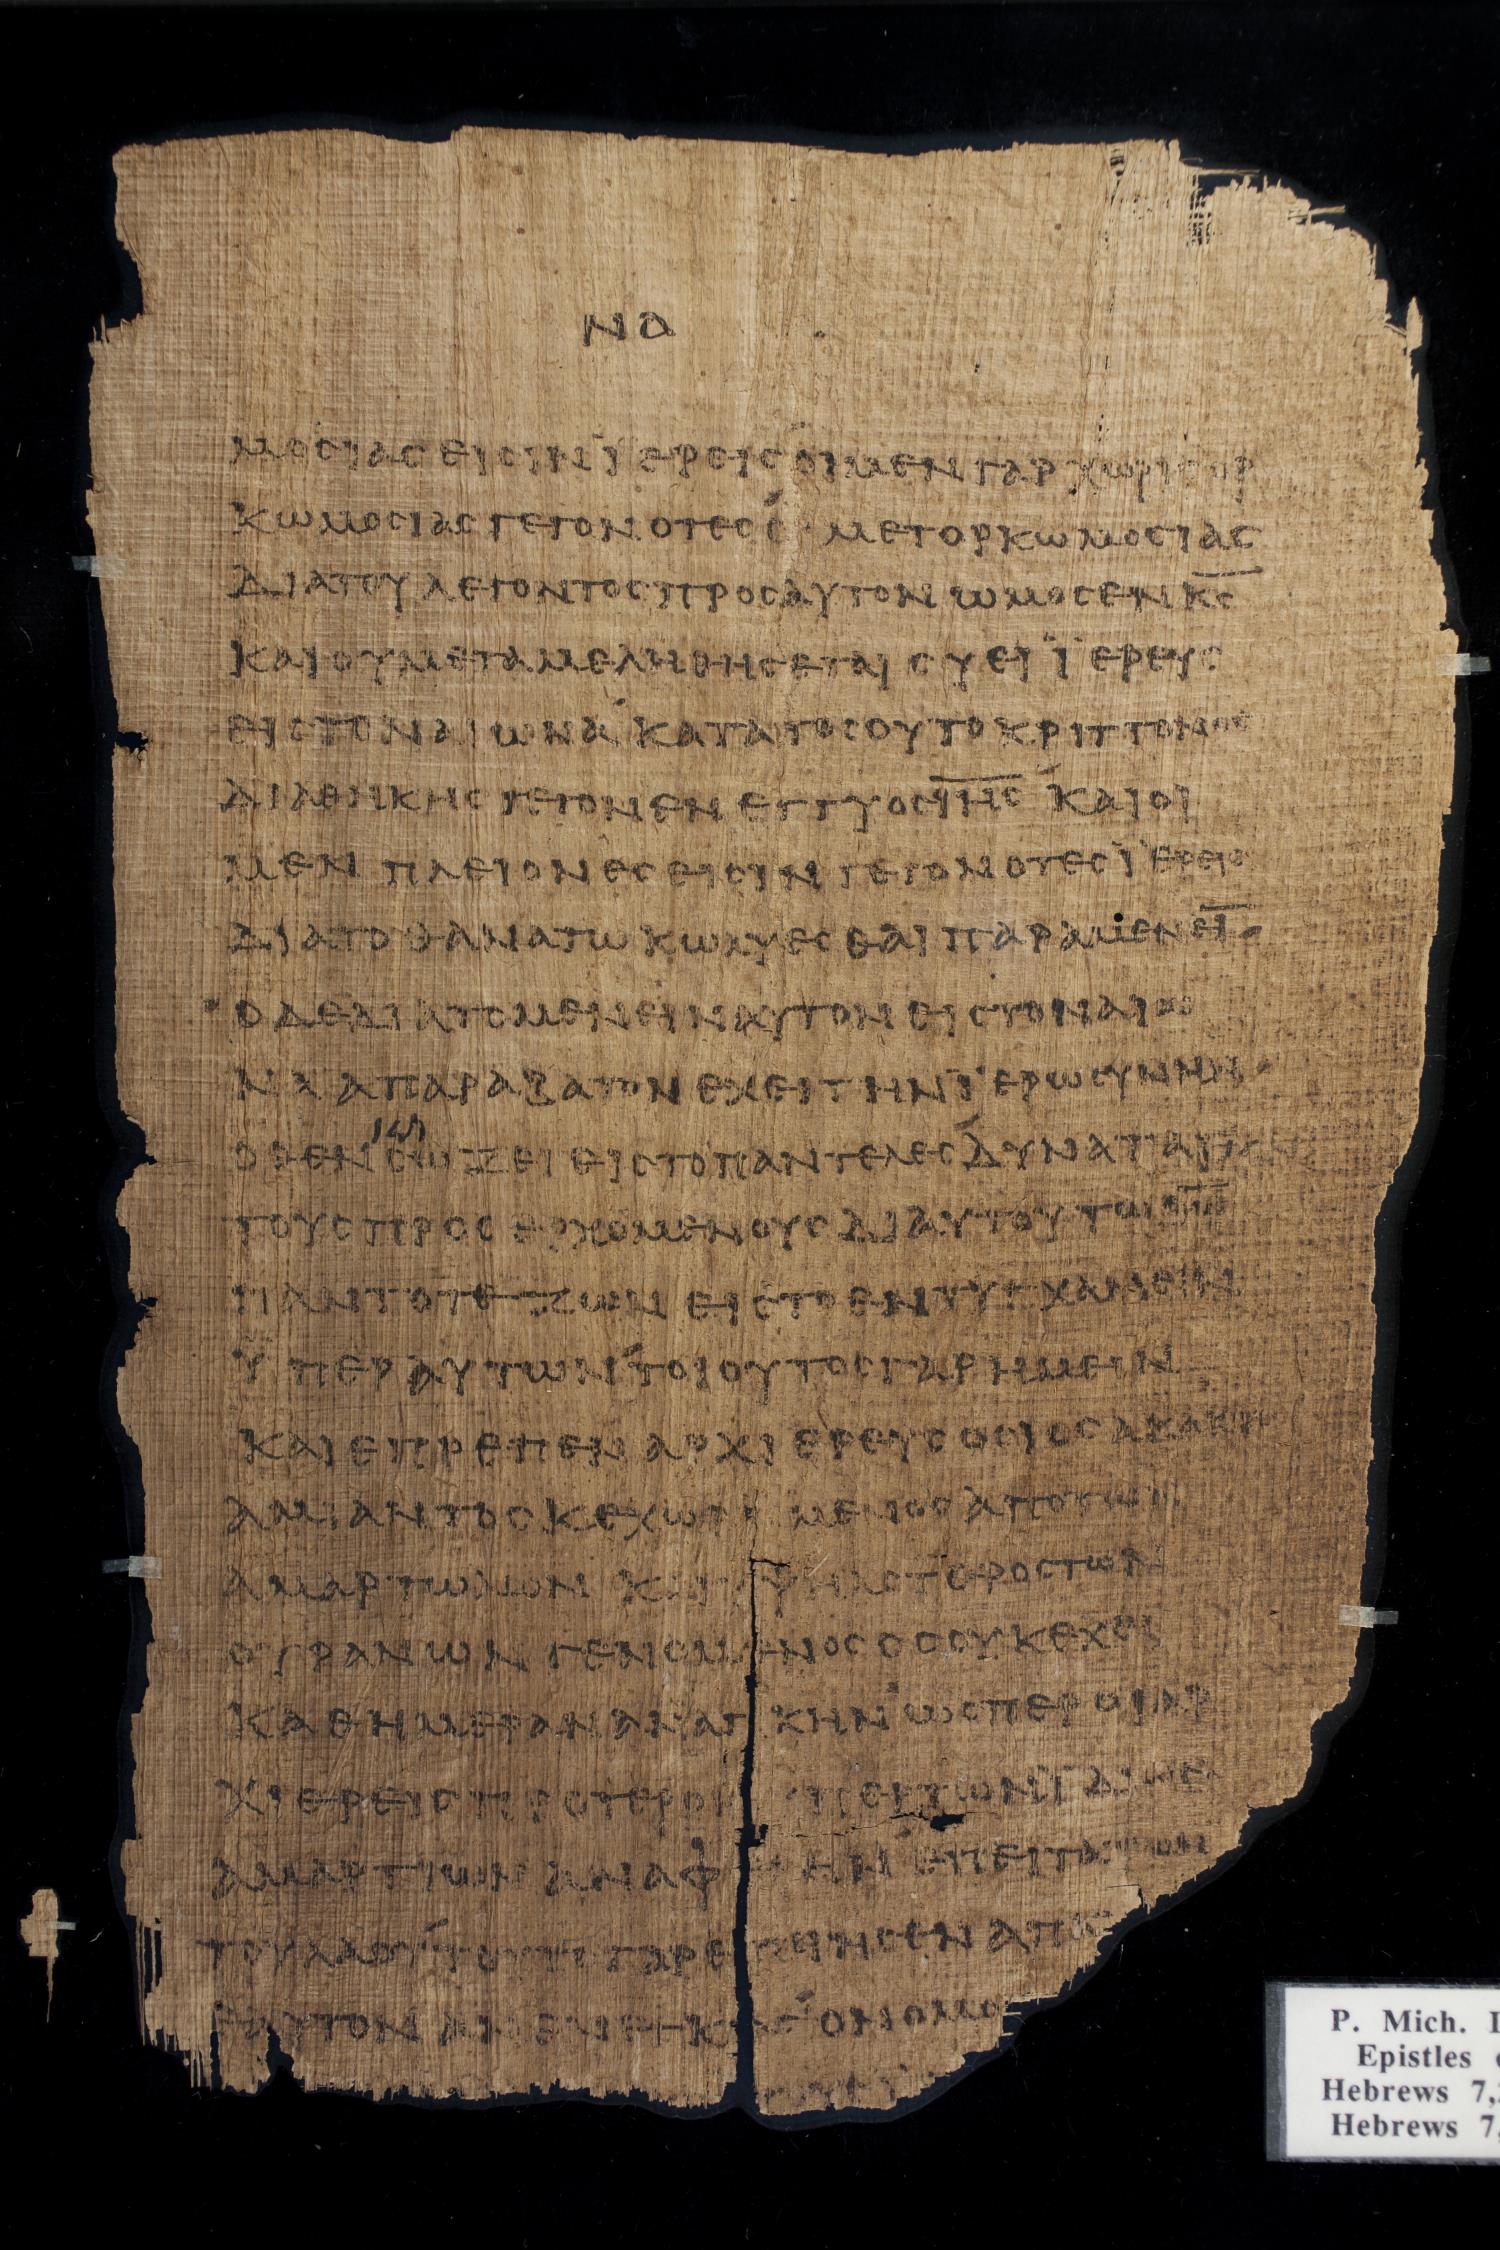 ΝΑ
ΜΟϹΙΑϹ ΕΙϹΙΝ ΪΕΡΕΙϹ ΟΙ ΜΕΝ ΓΑΡ ΧΩΡΙϹ ΟΡ
ΚΩΜΟϹΙΑϹ ΓΕΓΟΝΟΤΕϹ Ο ΜΕΤ ΟΡΚΩΜΟϹΙΑϹ
ΔΙΑ ΤΟΥ ΛΕΓΟΝΤΟϹ ΠΡΟϹ ΑΥΤΟΝ ΩΜΟϹΕΝ Κ̅Ϲ̅
ΚΑΙ ΟΥ ΜΕΤΑΜΕΛΗΘΗϹΕΤΑΙ ϹΥ ΕΙ ΪΕΡΕΥϹ
ΕΙϹ ΤΟΝ ΑΙΩΝΑ ΚΑΤΑ ΤΟϹΟΥΤΟ ΚΡΙΤΤΟΝΟϹ
ΔΙΑΘΗΚΗϹ ΓΕΓΟΝΕΝ ΕΓΓΥΟϹ Ι̅Η̅Ϲ̅ ΚΑΙ ΟΙ
ΜΕΝ ΠΛΕΙΟΝΕϹ ΕΙϹΙΝ ΓΕΓΟΝΟΤΕϹ ΪΕΡΕΙϹ
ΔΙΑ ΤΟ ΘΑΝΑΤΩ ΚΩΛΥΕϹΘΑΙ ΠΑΡΑΜΕΝΕΙ̅
Ο ΔΕ ΔΙΑ ΤΟ ΜΕΝΕΙΝ ΑΥΤΟΝ ΕΙϹ ΤΟΝ ΑΙΩ
ΝΑ ΑΠΑΡΑΒΑΤΟΝ ΕΧΕΙ ΤΗΝ ΪΕΡΩϹΥΝΗΝ
ΟΘΕΝ ϹΩΖΕΙ ΕΙϹ ΤΟ ΠΑΝΤΕΛΕϹ ΔΥΝΑΤΑΙ
ΤΟΥϹ ΠΡΟϹΕΡΧΟΜΕΝΟΥϹ ΔΙ ΑΥΤΟΥ ΤΩ Θ̅Ω̅
ΠΑΝΤΟΤΕ ΖΩΝ ΕΙϹ ΤΟ ΕΝΤΥΓΧΑΝΕΙΝ
ΫΠΕΡ ΑΥΤΩΝ ΤΟΙΟΥΤΟϹ ΓΑΡ ΗΜΕΙΝ
ΚΑΙ ΕΠΡΕΠΕΝ ΑΡΧΙΕΡΕΥϹ ΟϹΙΟϹ ΑΚΑΚΟϹ
ΑΜΙΑΝΤΟϹ ΚΕΧΩΡΙ ΜΕΝΟϹ ΑΠΟ ΤΩΝ
ΑΜΑΡΤΩΛΩΝ ΚΑΙ ΥΨΗΛΟΤΕΡΟϹ ΤΩΝ
ΟΥΡΑΝΩΝ ΓΕΝΟΜΕΝΟϹ ΟϹ ΟΥΚ ΕΧΕΙ
ΚΑΘ ΗΜΕΡΑΝ ΑΝΑΓΚΗΝ ΩϹΠΕΡ ΟΙ ΑΡ
ΧΙΕΡΕΙϹ ΠΡΟΤΕΡΟΝ ΥΠΕΡ ΤΩΝ ΙΔΙΩΝ
ΑΜΑΡΤΙΩΝ ΑΝΑΦ ΕΠΕΙΤΑ ΤΩΝ
ΤΟΥ ΛΑΟΥ ΤΟΥΤΟ ΓΑΡ ΕΠΟΙΗϹΕΝ ΑΠΑΞ
ΕΑΥΤΟΝ ΑΝΕΝΕΓΚΑϹ Ο ΝΟΜΟ
P. Mich.
Epistles
Hebrews 7,
Hebrews 7,